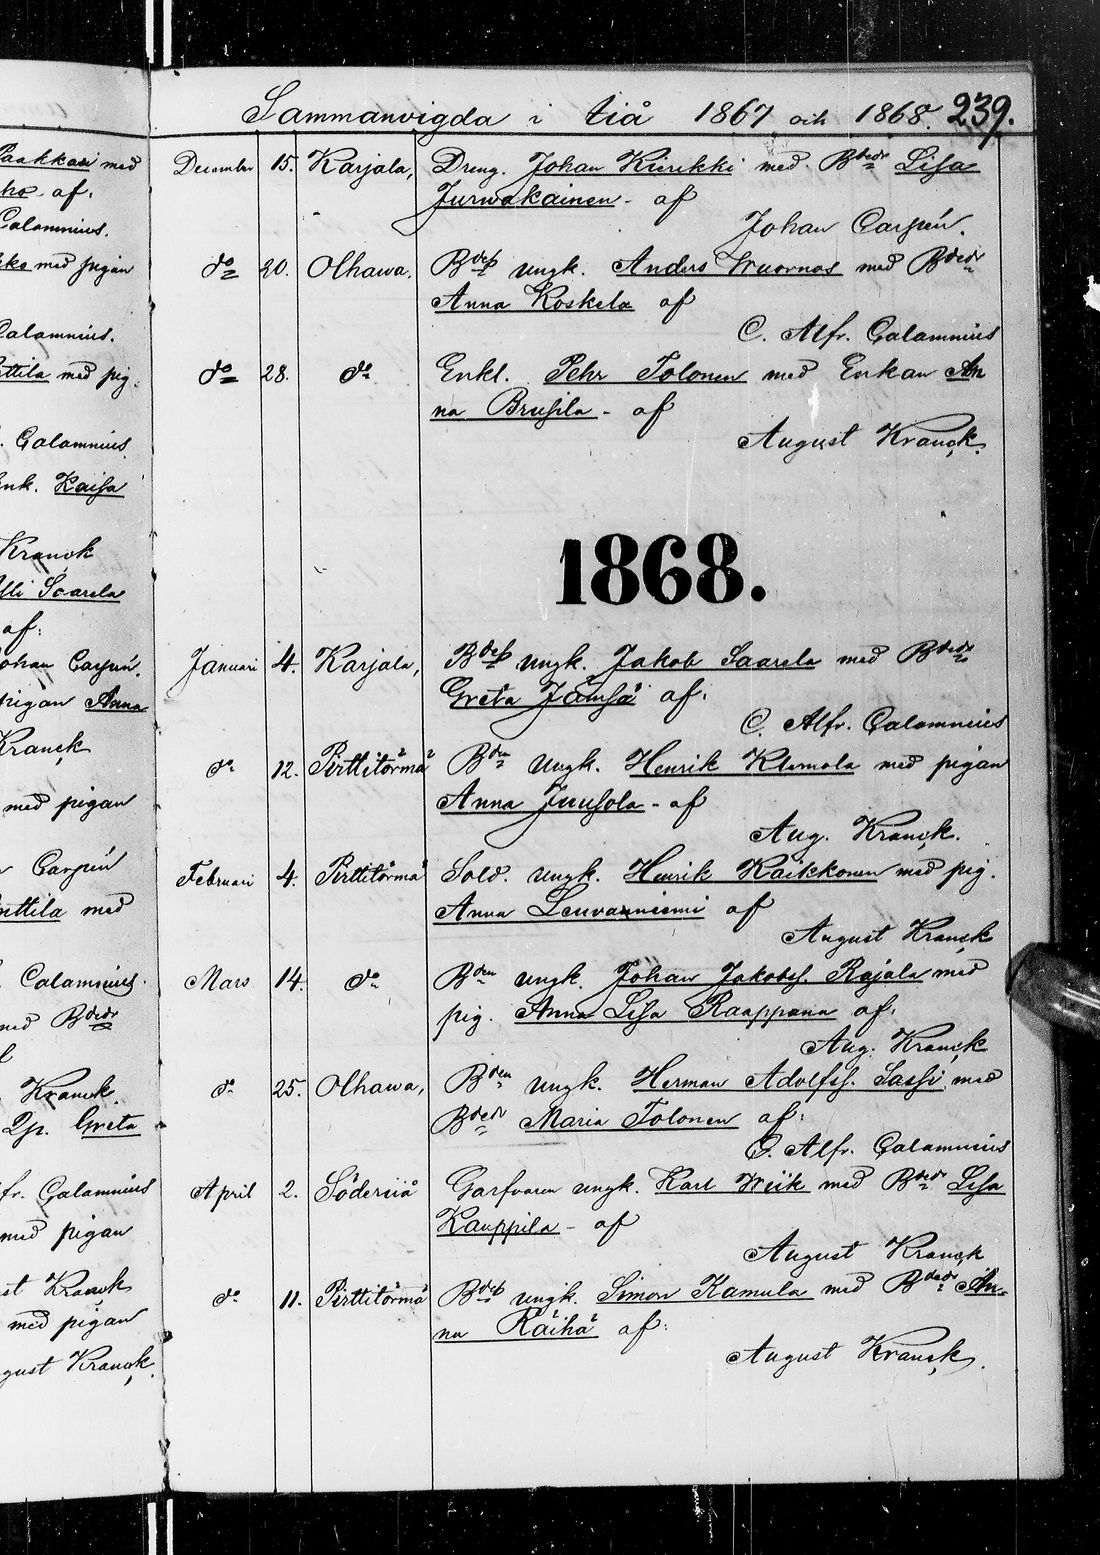 Sammanvigda i Iiå 1867 och 1868. 239.
December 15. Karjala, Dreng. Johan Kierikki med Bdedr Lisa
Jurwakainen - af
Johan Carpén.
do 20. Olhawa, Bdes ungk. Anders Wuornos med Bdedr
Anna Koskela af
C. Alfr. Calamnius
do 28. do Enkl. Pehr Tolonen med Enkan An
na Brusila - af
August Kranck.
1868.
Januari 4. Karjala, Bdes ungk. Jakob Saarela med Bdedr
Greta Jämsä af:
C. Alfr. Calamnius
do 12. Pirttitörmä Bden Ungk. Henrik Klemola med pigan
Anna Juusola - af
Aug. Kranck.
Februari 4. Pirttitörmä Sold. ungk. Henrik Kaikkonen med pig.
Anna Leuvanniemi af
August Kranck
Mars 14. do Bden ungk. Johan Jakobss. Rajala med
pig. Anna Lisa Raappana af:
Aug. Kranck
do 25. Olhawa, Bden ungk. Herman Adolfss. Sassi med
Bdedr Maria Tolonen af:
C. Alfr. Calamnius
April 2. Söderiiå Garfvaren ungk. Karl Wiik med Bdedr Lisa
Kauppila - af
August Kranck
do 11. Pirttitörmä Bdes ungk. Simon Kamula med Bdedr An-
na Räihä af:
August Kranck.
Paakkari med
af:
Calamnius.
med pigan
Calamnius.
med pig.
Calamnius
Enk. Kaisa
Kranck
Saarela
af:
Johan Carpén.
pigan Anna
Kranck
med pigan
Carpén
med
Calamnius.
med Bdedr
Kranck.
Greta
Alfr. Calamnius
med pigan
August Kranck
med pigan
August Kranck.